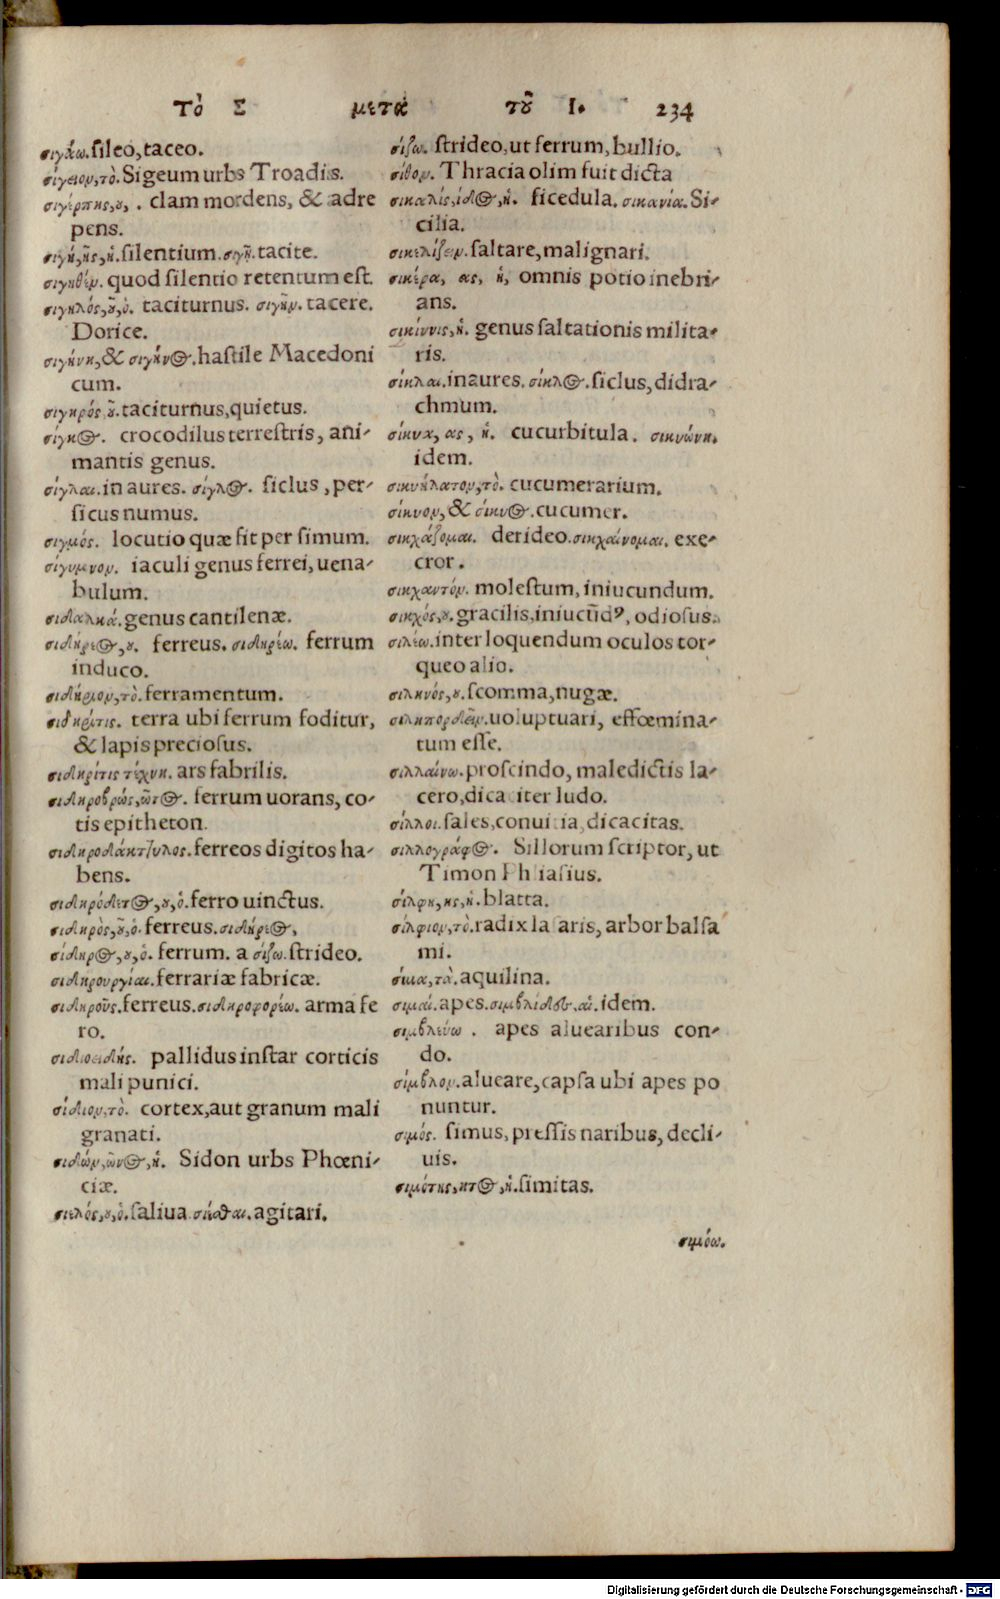 Τὸ Σ μετὰ τοῦ Ι. 234
σιγάω. sileo, taceo.
σίγειον, τὸ. Sigeum urbs Troadis.
σιγέρπης, ου, . clam mordens, & adre
pens.
σιγὴ, ῆς, ἡ. silentium. σιγῇ. tacite.
σιγηθέν. quod silentio retentum est.
σιγηλός, οῦ, ὁ. taciturnus. σιγῆν. tacere.
Dorice.
σιγήνη, & σιγήνος. hastile Macedoni
cum.
σιγηρός οῦ. taciturnus, quietus.
σίγκος. crocodilus terrestris, ani-
mantis genus.
σίγλαι. inaures. σίγλος. siclus, per-
sicus numus.
σιγμός. locutio quæ fit per simum.
σίγυμνον. iaculi genus ferrei, uena-
bulum.
σιδαλκά. genus cantilenæ.
σιδήρεος, ου. ferreus. σιδηρέω. ferrum
induco.
σιδήριον, τὸ. ferramentum.
σιδηρίτις. terra ubi ferrum foditur,
& lapis preciosus.
σιδηρίτις τέχνη. ars fabrilis.
σιδηροβρώς, ῶτος. ferrum uorans, co-
tis epitheton.
σιδηροδάκτυλος. ferreos digitos ha-
bens.
σιδηρόδετος, ου, ὁ. ferro uinctus.
σιδηρὸς, οῦ, ὁ. ferreus. σιδήρεος,
σίδηρος, ου, ὁ. ferrum. a σίζω. strideo.
σιδηρουργίαι. ferrariæ fabricæ.
σιδηροῦς. ferreus. σιδηροφορέω. arma fe
ro.
σιδιοειδής. pallidus instar corticis
mali punici.
σίδιον, τὸ. cortex, aut granum mali
granati.
σιδών, ῶνος, ἡ. Sidon urbs Phœni-
ciæ.
σιελός, ου, ὁ. saliua. σιέσθαι. agitari.
σίζω. strideo, ut ferrum, bullio.
σίθον. Thracia olim fuit dicta
σικαλίς, ίδος, ἡ. ficedula. σικανία. Si-
cilia.
σικελίζειν. saltare, malignari.
σικέρα, ας, ἡ, omnis potio inebri-
ans.
σικίννις, ἡ. genus saltationis milita-
ris.
σίκλαι. inaures. σίκλος. siclus, didra-
chmum.
σίκυα, ας, ἡ. cucurbitula. σικυώνη.
idem.
σικυήλατον, τὸ. cucumerarium.
σίκυον, & σίκυος. cucumer.
σικχάζομαι. derideo. σικχαίνομαι. exe-
cror.
σικχαντόν. molestum, iniucundum.
σικχός, ου. gracilis, iniucūdꝰ, odiosus.
σιλέω. inter loquendum oculos tor-
queo alio.
σιληνός, ου. scomma, nugæ.
σιληπορδεῖν. uoluptuari, effœmina-
tum esse.
σιλλαίνω. proscindo, maledictis la-
cero, dicaciter ludo.
σίλλοι. sales, conuitia, dicacitas.
σιλλογράφος. Sillorum scriptor, ut
Timon Phliasius.
σίλφη, ης, ἡ. blatta.
σίλφιον, τὸ. radix lasaris, arbor balsa
mi.
σίμα, τὰ. aquilina.
σιμαί. apes. σιμβλίδες. αἱ. idem.
σιμβλεύω . apes aluearibus con-
do.
σίμβλον. alueare, capsa ubi apes po
nuntur.
σιμός. simus, pressis naribus, decli-
uis.
σιμότης, ητος, ἡ. simitas.
σιμόω.
Digitalisierung gefördert durch die Deutsche Forschungsgemeinschaft - DFG